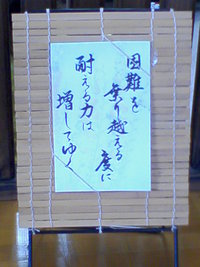 困難を
乗り越える
度に
耐える力は
増してゆく